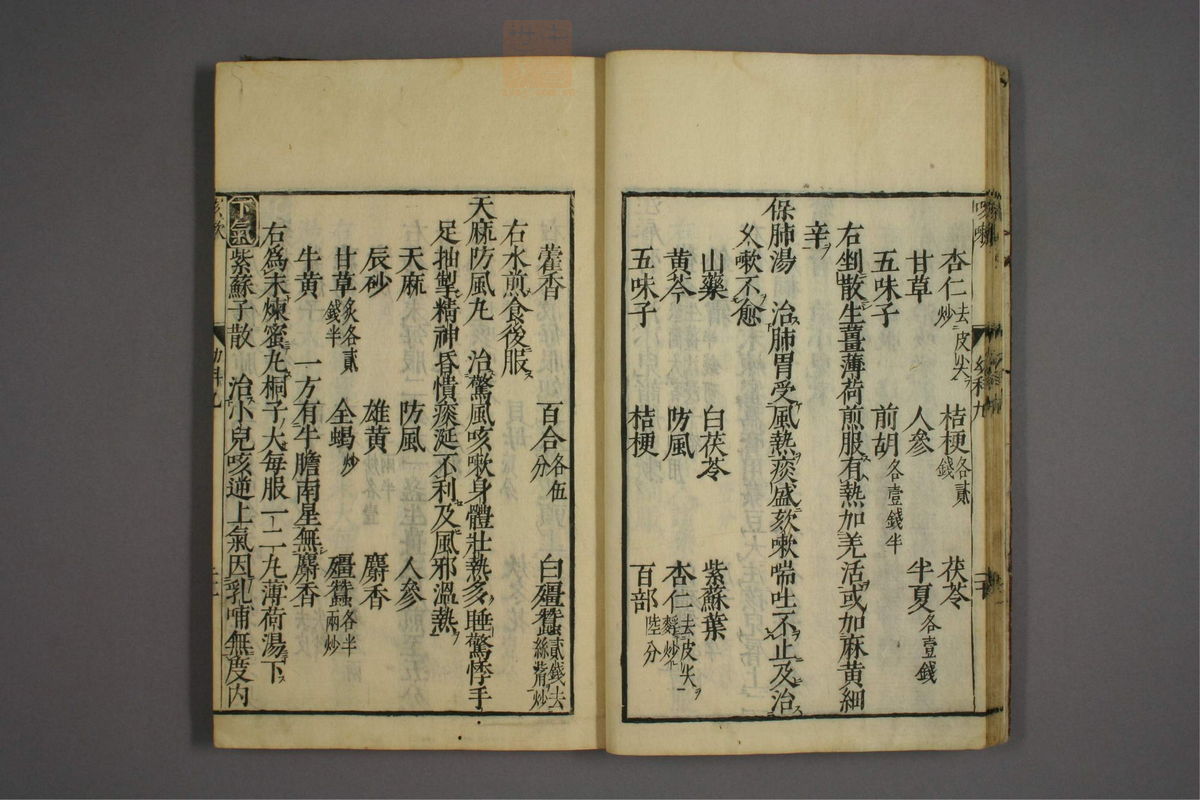 杏仁去皮尖炒 桔梗各貳錢 茯苓
甘草 人參 半夏各壹錢
五味子 前胡各壹錢半
右剉散生薑薄荷煎服有熱加羌活或加麻黃細
辛
保肺湯 治肺胃受風熱痰盛欬嗽喘吐不止及治
久嗽不愈
山藥 白茯苓 紫蘇葉
黃芩 防風 杏仁去皮尖麩炒
五味子 桔梗 百部陸分
藿香 百合各伍分 白殭蠶貳錢去絲觜炒
右水煎食後服
天麻防風丸 治驚風咳嗽身體壯熱多睡驚悸手
足抽掣精神昏憒痰涎不利及風邪溫熱
天麻 防風 人參
辰砂 雄黃 麝香
甘草炙各貳錢半 全蝎炒 殭蠶各半兩炒
牛黃 一方有牛膽南星無麝香
右爲末煉蜜丸桐子大每服一二丸薄荷湯下
下氣 紫蘇子散 治小兒咳逆上氣因乳哺無度內